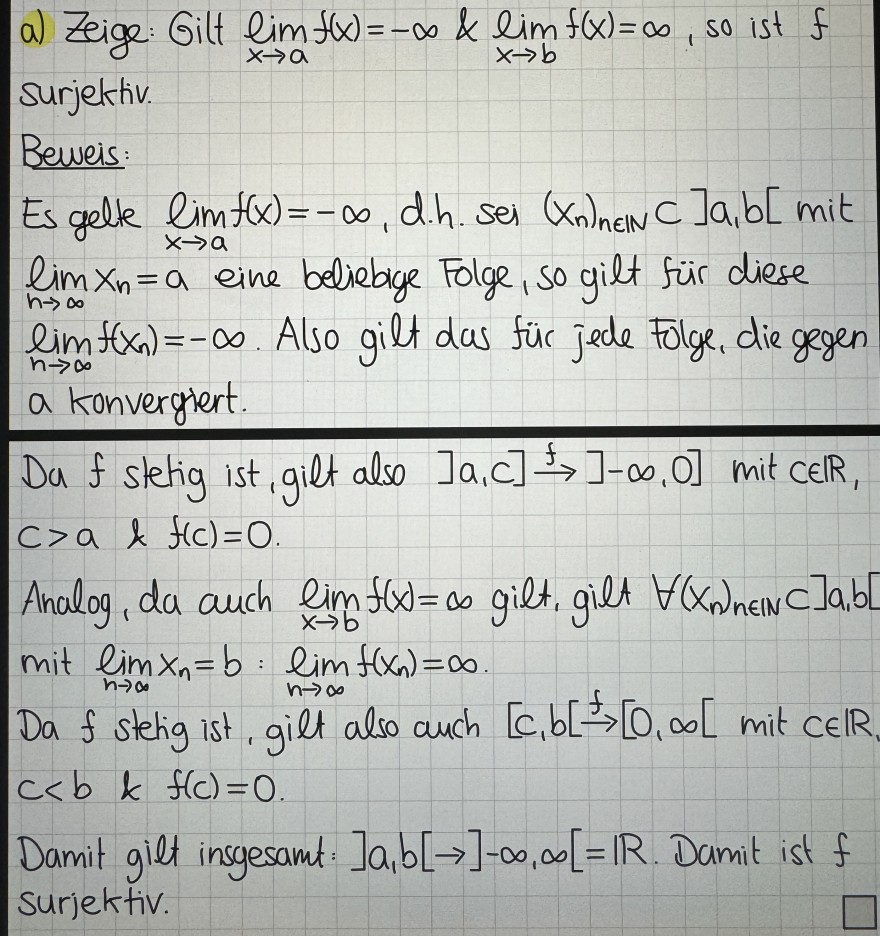 a) Zeige: Gilt lim f(x) = -∞ & lim f(x) = ∞, so ist f
x→a x→b
surjektiv.
Beweis:
Es gelte lim f(x) = -∞, d.h. sei (xₙ)ₙ∈ℕ ⊂ ]a,b[ mit
x→a
lim xₙ = a eine beliebige Folge, so gilt für diese
n→∞
lim f(xₙ) = -∞. Also gilt das für jede Folge, die gegen
n→∞
a konvergiert.
Da f stetig ist, gilt also ]a,c] →f ]-∞,0] mit c∈ℝ,
c>a & f(c)=0.
Analog, da auch lim f(x) = ∞ gilt, gilt ∀(xₙ)ₙ∈ℕ ⊂ ]a,b[
x→b
mit lim xₙ = b : lim f(xₙ) = ∞.
n→∞ n→∞
Da f stetig ist, gilt also auch [c,b[ →f [0,∞[ mit c∈ℝ,
c<b & f(c)=0.
Damit gilt insgesamt: ]a,b[ → ]-∞,∞[ = ℝ. Damit ist f
surjektiv. □